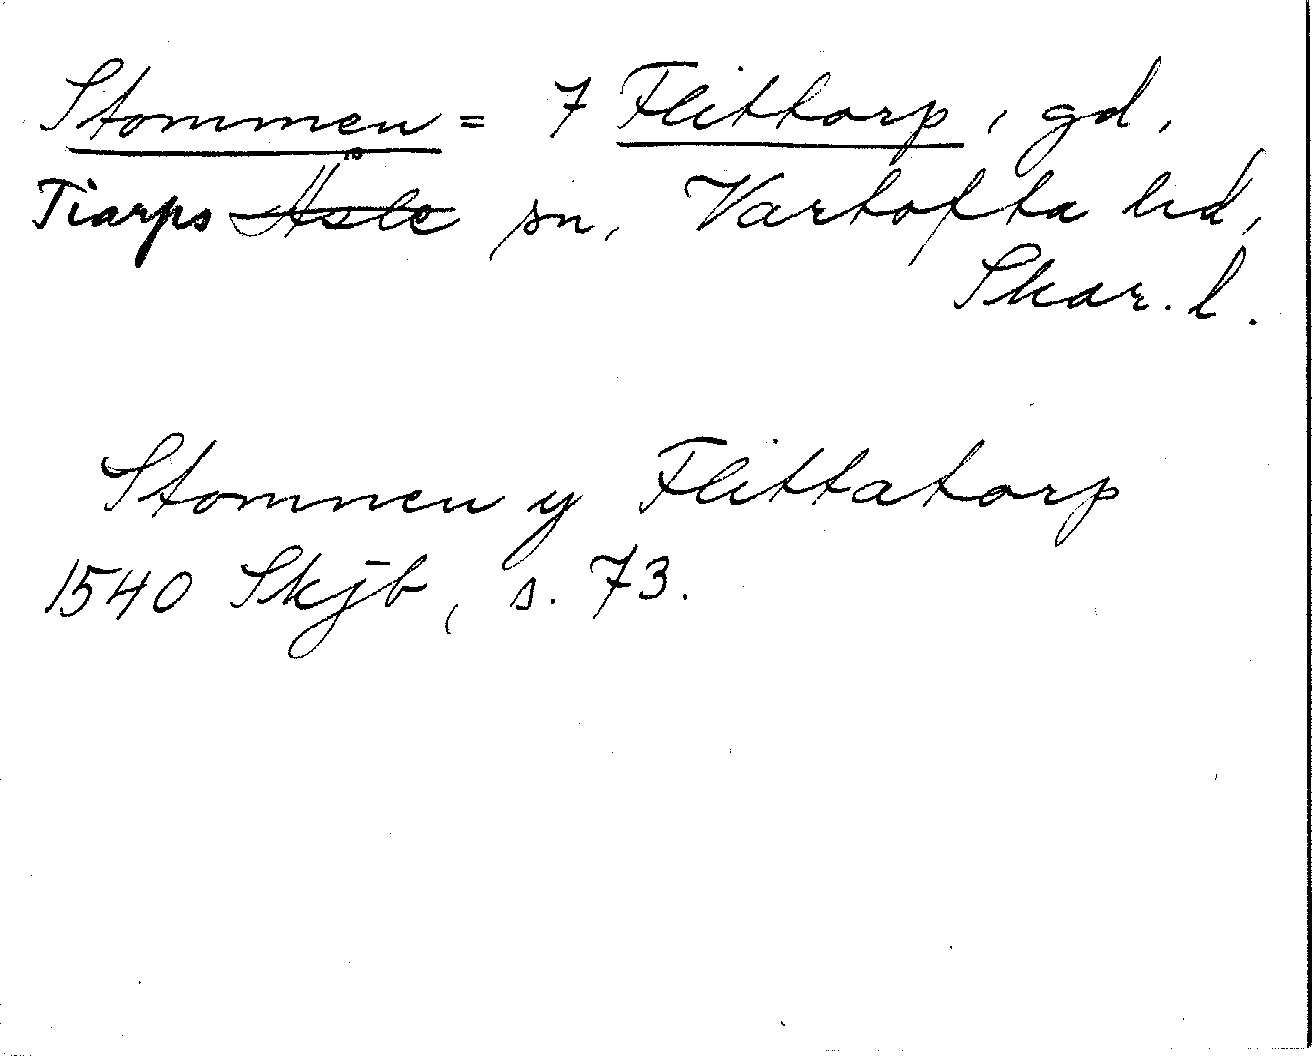 Stommen = 7 Flittorp, gd,
Tiarps Åsle sn, Vartofta hd,
Skar. l.
Stommen y Flittatorp
1540 Skjb, s. 73.